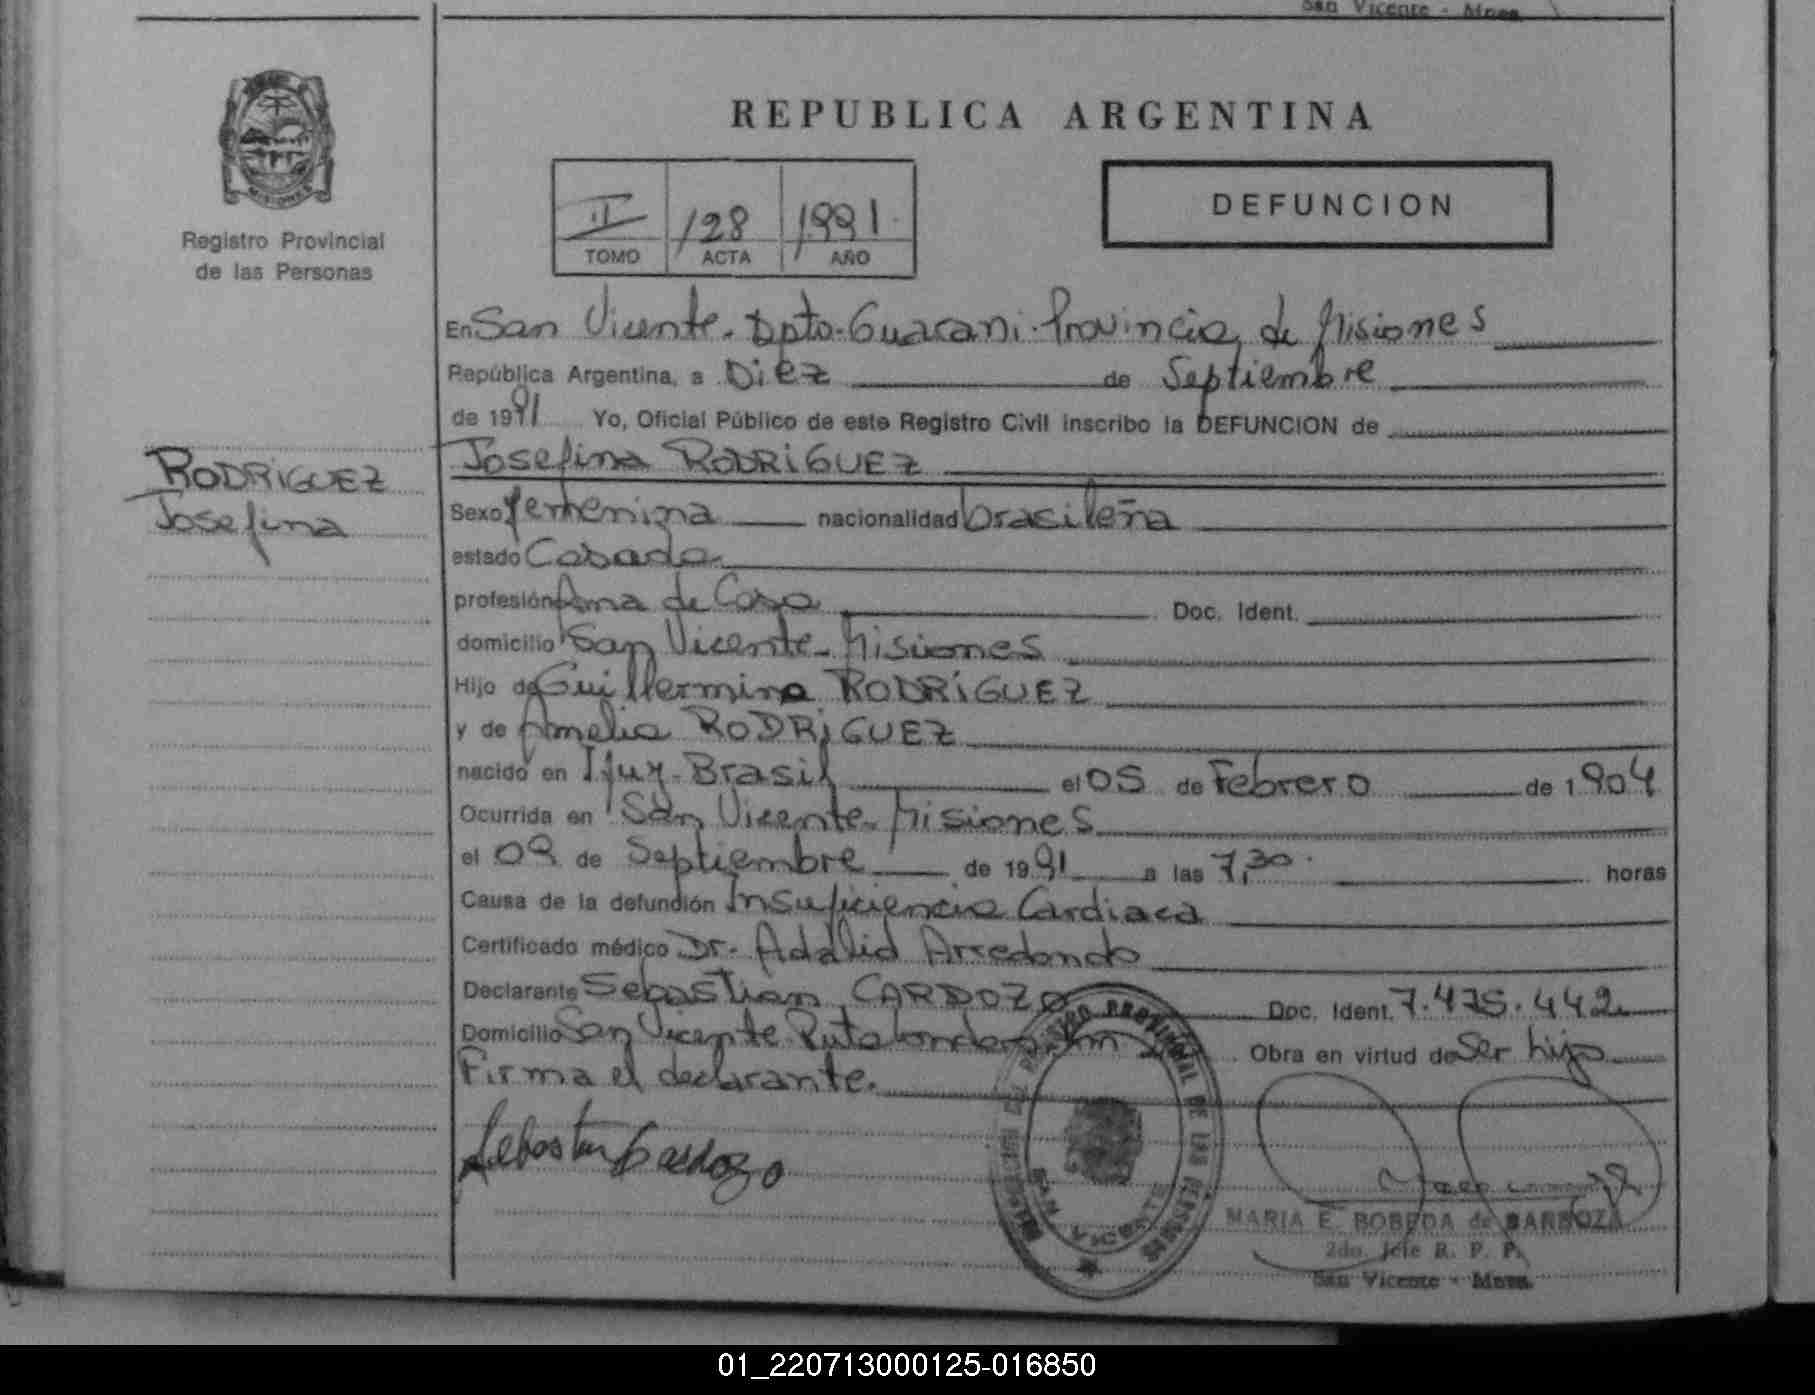 San Vicente - Mnes.
REPUBLICA ARGENTINA
MISIONES
II 128 1991.
TOMO ACTA AÑO
DEFUNCION
Registro Provincial
de las Personas
En San Vicente. Dpto. Guarani. Provincia de Misiones
República Argentina, a Diez de Septiembre
de 1991 Yo, Oficial Público de este Registro Civil inscribo la DEFUNCION de
Josefina RODRIGUEZ
RODRIGUEZ
Josefina
Sexo femenina nacionalidad brasileña
estado Casada
profesión Ama de Casa Doc. Ident.
domicilio San Vicente. Misiones
Hijo de Guillermino RODRIGUEZ
y de Amelia RODRIGUEZ
nacido en Ijuy. Brasil el 05 de Febrero de 1904
Ocurrida en San Vicente. Misiones
el 09 de Septiembre de 1991 a las 7,30 horas
Causa de la defunción Insuficiencia Cardiaca
Certificado médico Dr. Adalid Arredondo
Declarante Sebastian CARDOZO Doc. Ident. 7.475.442
Domicilio San Vicente Obra en virtud de Ser hijo
Firma el declarante.
Sebastian Cardozo
REGISTRO PROVINCIAL DE LAS PERSONAS
SAN VICENTE
MARIA E. BOBEDA de BARBOZA
2do. Jefe R. P. P.
San Vicente - Mnes.
01_220713000125-016850